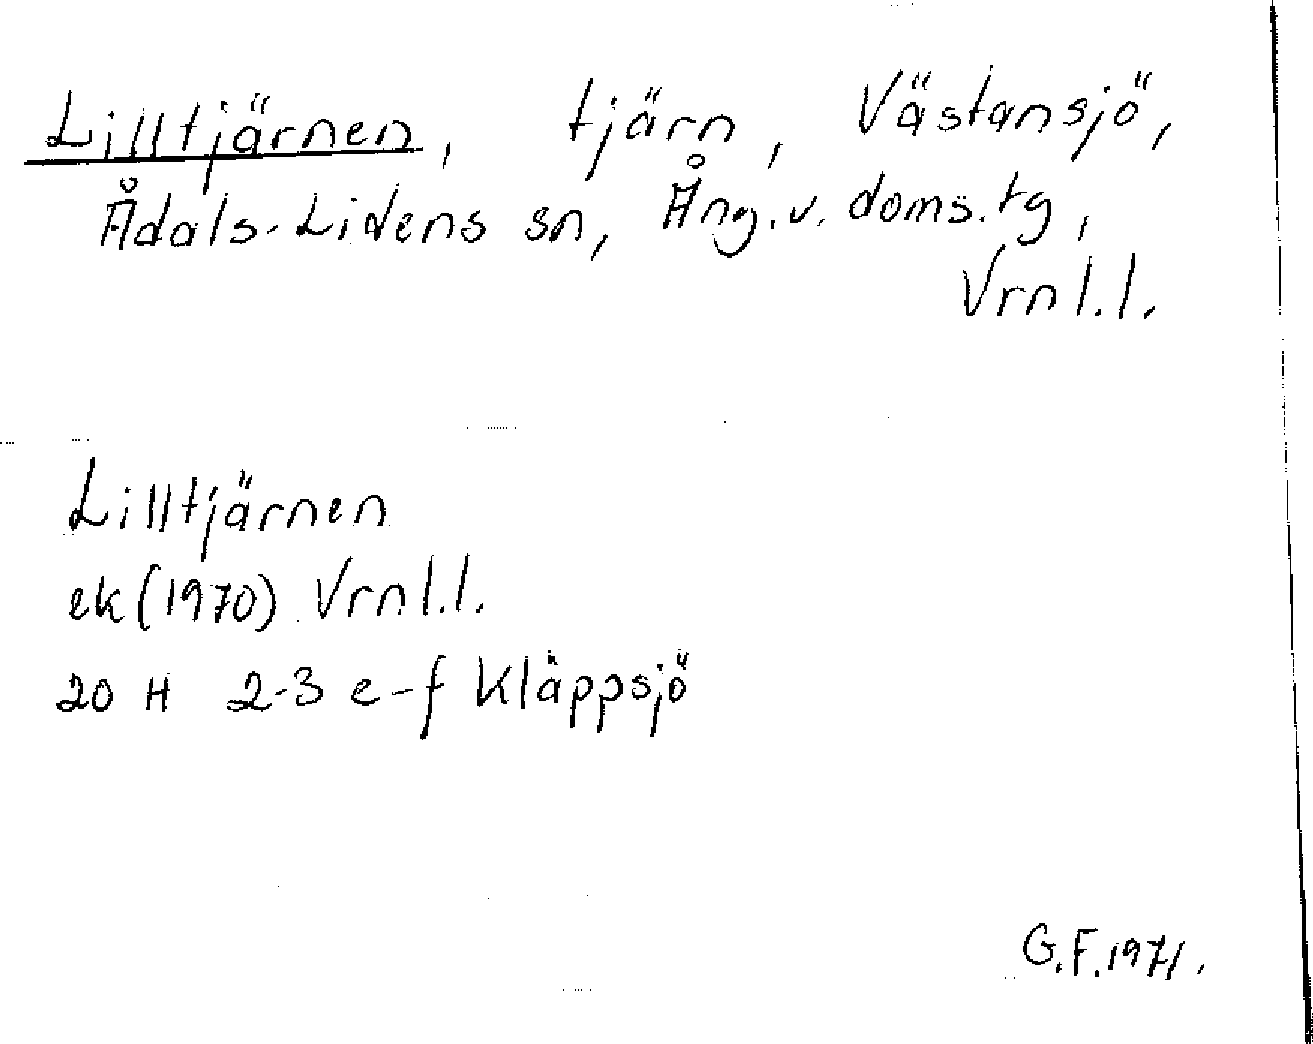 Lilltjärnen, tjärn, Västansjö,
Ådals-Lidens sn, Ång.v.doms.tg,
Vrnl.l.
Lilltjärnen
ek(1970) Vrnl.l.
20 H 2-3 e-f Kläppsjö
G.F.1971.